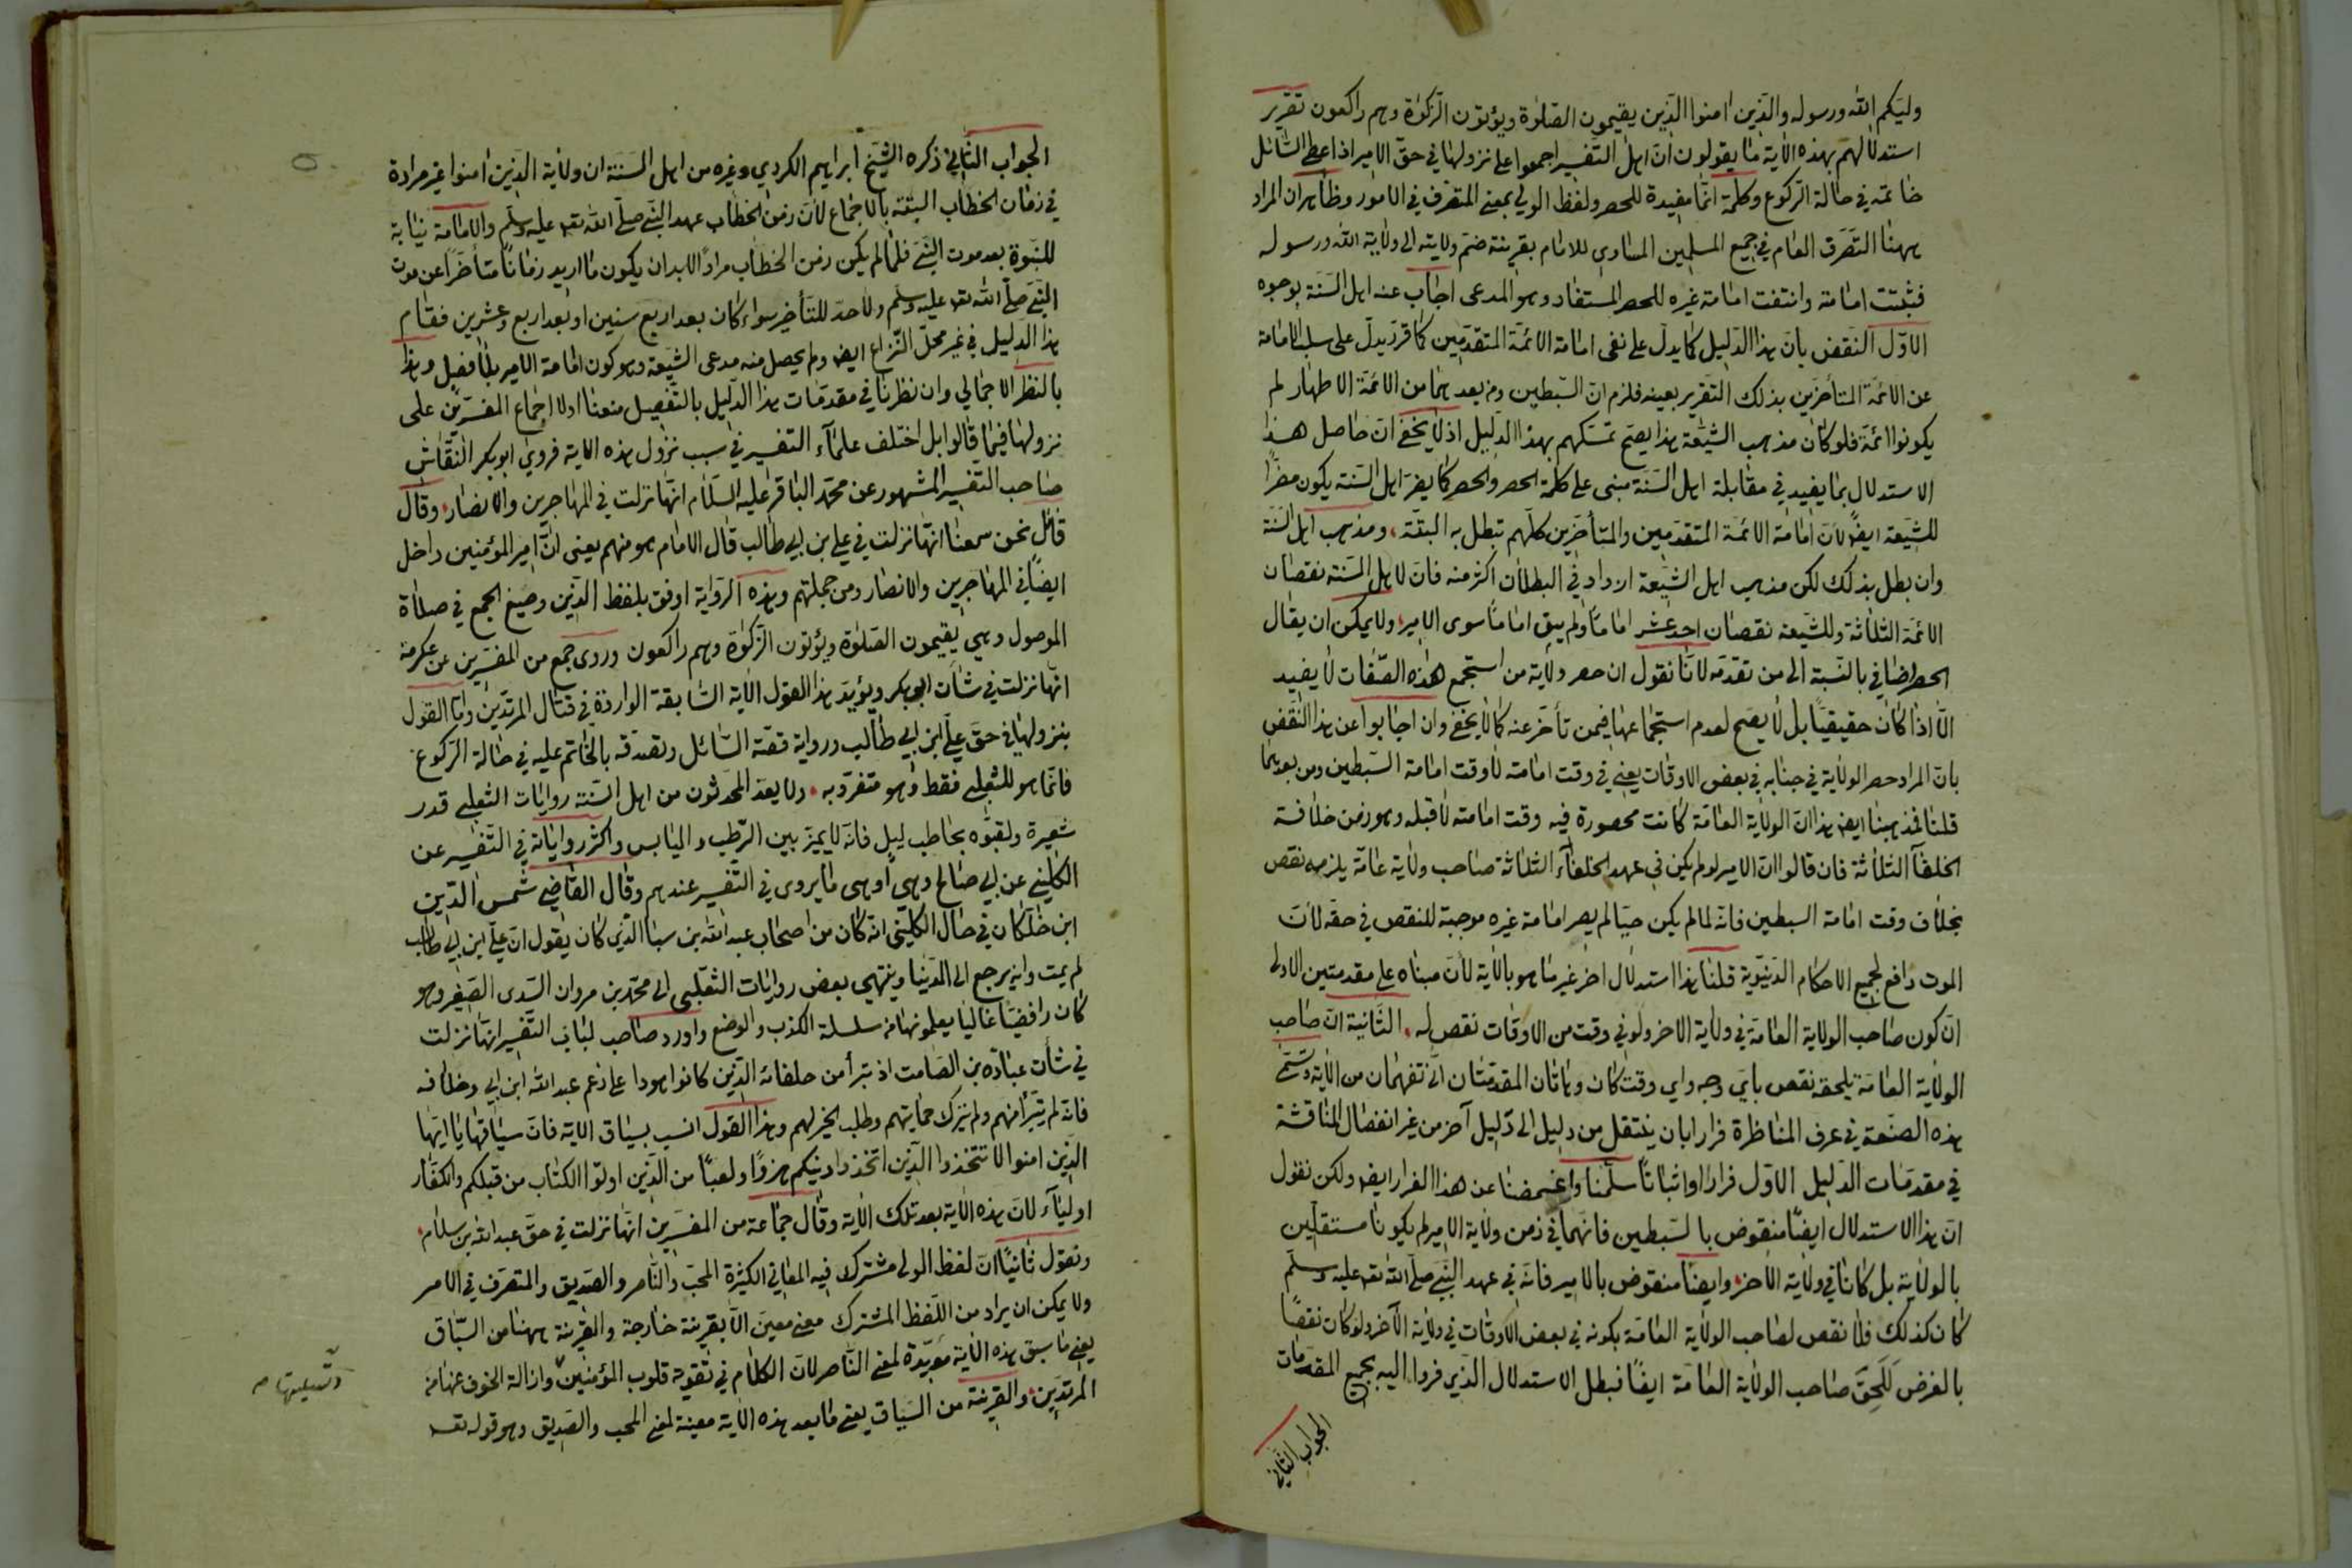 وليكم الله ورسوله والذين امنوا الذين يقيمون الصلوة ويؤتون الزكوة وهم راكعون تقرير
استدلالهم بهذه الاية ما يقولون ان اهل التفسير اجمعوا على نزولها في حق الامير اذ اعطى السائل
خاتمه في حالة الركوع وكلمة انما مفيدة للحصر ولفظ الولي بمعنى المتصرف في الامور وظاهر ان المراد
ههنا التصرف العام في جميع المسلمين المساوي للامام بقرينة ضم ولايته الى ولاية الله ورسوله
فثبتت امامته وانتفت امامة غيره للحصر المستفاد وهو المدعى اجاب عنه اهل السنة بوجوه
الاول النقض بان هذا الدليل كما يدل على نفى امامة الائمة المتقدمين كما قرر يدل على سلب الامامة
عن الائمة المتأخرين بذلك التقرير بعينه فلزم ان السبطين ومن بعدهما من الائمة الاطهار لم
يكونوا ائمة فلو كان مذهب الشيعة هذا يصح تمسكهم بهذا الدليل اذ لا يخفى ان حاصل هذا
الاستدلال بما يفيد في مقابلة اهل السنة مبنى على كلمة الحصر والحصر كما يضر اهل السنة يكون مضرا
للشيعة ايضا لان امامة الائمة المتقدمين والمتأخرين كلهم تبطل به البتة، ومذهب اهل السنة
وان بطل بذلك لكن مذهب اهل الشيعة ازداد في البطلان اكثر منه فان لاهل السنة نقصان
الائمة الثلاثة وللشيعة نقصان احد عشر اماما ولم يبق اماما سوى الامير، ولا يمكن ان يقال
الحصر اضافي بالنسبة الى من تقدمه لانا نقول ان حصر ولاية من استجمع هذه الصفات لا يفيد
الا اذا كان حقيقيا بل لا يصح لعدم استجماعها فيمن تأخر عنه كما لا يخفى وان اجابوا عن هذا النقض
بان المراد حصر الولاية في جنابه في بعض الاوقات يعني في وقت امامته لا وقت امامة السبطين ومن بعدهما
قلنا فمذهبنا ايضا هذا ان الولاية العامة كانت محصورة فيه وقت امامته لا قبله وهو زمن خلافة
الخلفآ الثلاثة فان قالوا ان الامير لو لم يكن في عهد الخلفآء الثلاثة صاحب ولاية عامة يلزمه نقص
بخلاف وقت امامة السبطين فانه لما لم يكن حيا لم يصر امامة غيره موجبة للنقص في حقه لان
الموت رافع لجميع الاحكام الدنيوية قلنا هذا استدلال اخر غير ما هو بالاية لان مبناه على مقدمتين الاولى
ان كون صاحب الولاية العامة في ولاية الاخر ولو في وقت من الاوقات نقص له، الثانية ان صاحب
الولاية العامة يلحقه نقص باي وجه واي وقت كان وهاتان المقدمتان انى تفهمان من الاية وتسمى
هذه الصنعة في عرف المناظرة فرارا بان ينتقل من دليل الى دليل آخر من غير انفصال المناقشة
في مقدمات الدليل الاول فرارا واثباتا سلمنا واغمضنا عن هذا الفرار ايضا ولكن نقول
ان هذا الاستدلال ايضا منقوض بالسبطين فانهما في زمن ولاية الامير لم يكونا مستقلين
بالولاية بل كانا في ولاية الاخر، وايضا منقوض بالامير فانه في عهد النبي صلى الله تعه عليه وسلم
كان كذلك فلا نقص لصاحب الولاية العامة بكونه في بعض الاوقات في ولاية الآخر ولو كان نقصا
بالفرض للحق صاحب الولاية العامة ايضا فبطل الاستدلال الذي فروا اليه بجميع المقدمات
الجواب الثاني
الجواب الثاني ذكره الشيخ ابراهيم الكردي وغيره من اهل السنة ان ولاية الذين امنوا غير مرادة
في زمان الخطاب البتة بالاجماع لان زمن الخطاب عهد النبي صلى الله تعه عليه وسلم والامامة نيابة
للنبوة بعد موت النبي فلما لم يكن زمن الخطاب مرادا لابد ان يكون ما اريد زمانا متأخرا عن موت
النبي صلى الله تعه عليه وسلم ولا حد للتأخير سواء كان بعد اربع سنين او بعد اربع وعشرين فقام
هذا الدليل في غير محل النزاع ايضا ولم يحصل منه مدعى الشيعة وهو كون امامة الامير بلا فصل وهذا
بالنظر الاجمالي وان نظرنا في مقدمات هذا الدليل بالتفصيل منعنا اولا اجماع المفسرين على
نزولها فيما قالوا بل اختلف علمآء التفسير في سبب نزول هذه الاية فروى ابو بكر النقاش
صاحب التفسير المشهور عن محمد الباقر عليه السلام انها نزلت في المهاجرين والانصار، وقال
قائل نحن سمعنا انها نزلت في علي بن ابي طالب قال الامام هو منهم يعنى ان امير المؤمنين داخل
ايضا في المهاجرين والانصار ومن جملتهم وهذه الرواية اوفق بلفظ الذين وصيغ الجمع في صلاة
الموصول وهي يقيمون الصلوة ويؤتون الزكوة وهم راكعون وروى جمع من المفسرين عن عكرمة
انها نزلت في شان ابي بكر ويؤيد هذا القول الاية السابقة الواردة في قتال المرتدين واما القول
بنزولها في حق علي ابن ابي طالب ورواية قصة السائل وتصدقه بالخاتم عليه في حالة الركوع
فانما هو للثعلبي فقط وهو متفرد به، ولا يعد المحدثون من اهل السنة روايات الثعلبي قدر
شعيرة ولقبوه بحاطب ليل فانه لا يميز بين الرطب واليابس واكثر رواياته في التفسير عن
الكليني عن ابي صالح وهي اوهى ما يروى في التفسير عندهم وقال القاضي شمس الدين
ابن خلكان في حال الكليني انه كان من اصحاب عبد الله بن سبا الذي كان يقول ان علي ابن ابي طالب
لم يمت وانه يرجع الى الدنيا وينتهي بعض روايات الثعلبي الى محمد بن مروان السدى الصغير وهو
كان رافضيا غاليا يعلمونها من سلسلة الكذب والوضع واورد صاحب لباب التفسير انها نزلت
في شأن عبادة بن الصامت اذ تبرأ من حلفائه الذين كانوا هودا على زعم عبد الله ابن ابي وخلافه
فانه لم يتبرأ منهم ولم يترك حمايتهم وطلب الخير لهم وهذا القول انسب بسياق الاية فان سياقها يا ايها
الذين امنوا لا تتخذوا الذين اتخذوا دينكم هزوا ولعبا من الذين اوتوا الكتاب من قبلكم والكفار
اوليآء لان هذه الاية بعد تلك الاية وقال جماعة من المفسرين انها نزلت في حق عبد الله بن سلام،
ونقول ثانيا ان لفظ الولى مشترك فيه المعاني الكثيرة المحب والناصر والصديق والمتصرف في الامر
ولا يمكن ان يراد من اللفظ المشترك معنى معين الا بقرينة خارجة والقرينة ههنا من السباق
يعني ما سبق هذه الاية مؤيدة لمعنى الناصر لان الكلام في تقوية قلوب المؤمنين وازالة الخوف عنها من
المرتدين، والقرينة من السياق يعني ما بعد هذه الاية معينة لمعنى المحب والصديق وهو قوله تعه
وتسليتها